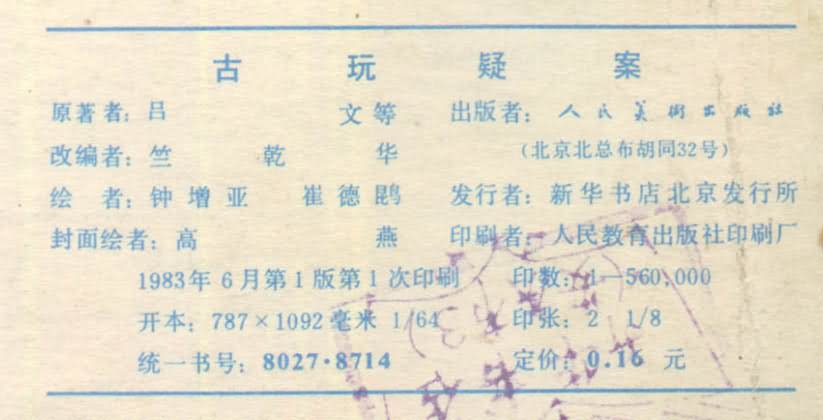 古玩疑案
原著者：吕文等 出版者：人民美術出版社
改编者：竺乾华 （北京北总布胡同32号）
绘者：钟增亚 崔德鹍 发行者：新华书店北京发行所
封面绘者：高燕 印刷者：人民教育出版社印刷厂
1983年6月第1版第1次印刷 印数：1—560,000
开本：787×1092毫米 1/64 印张：2 1/8
统一书号：8027·8714 定价：0.16元